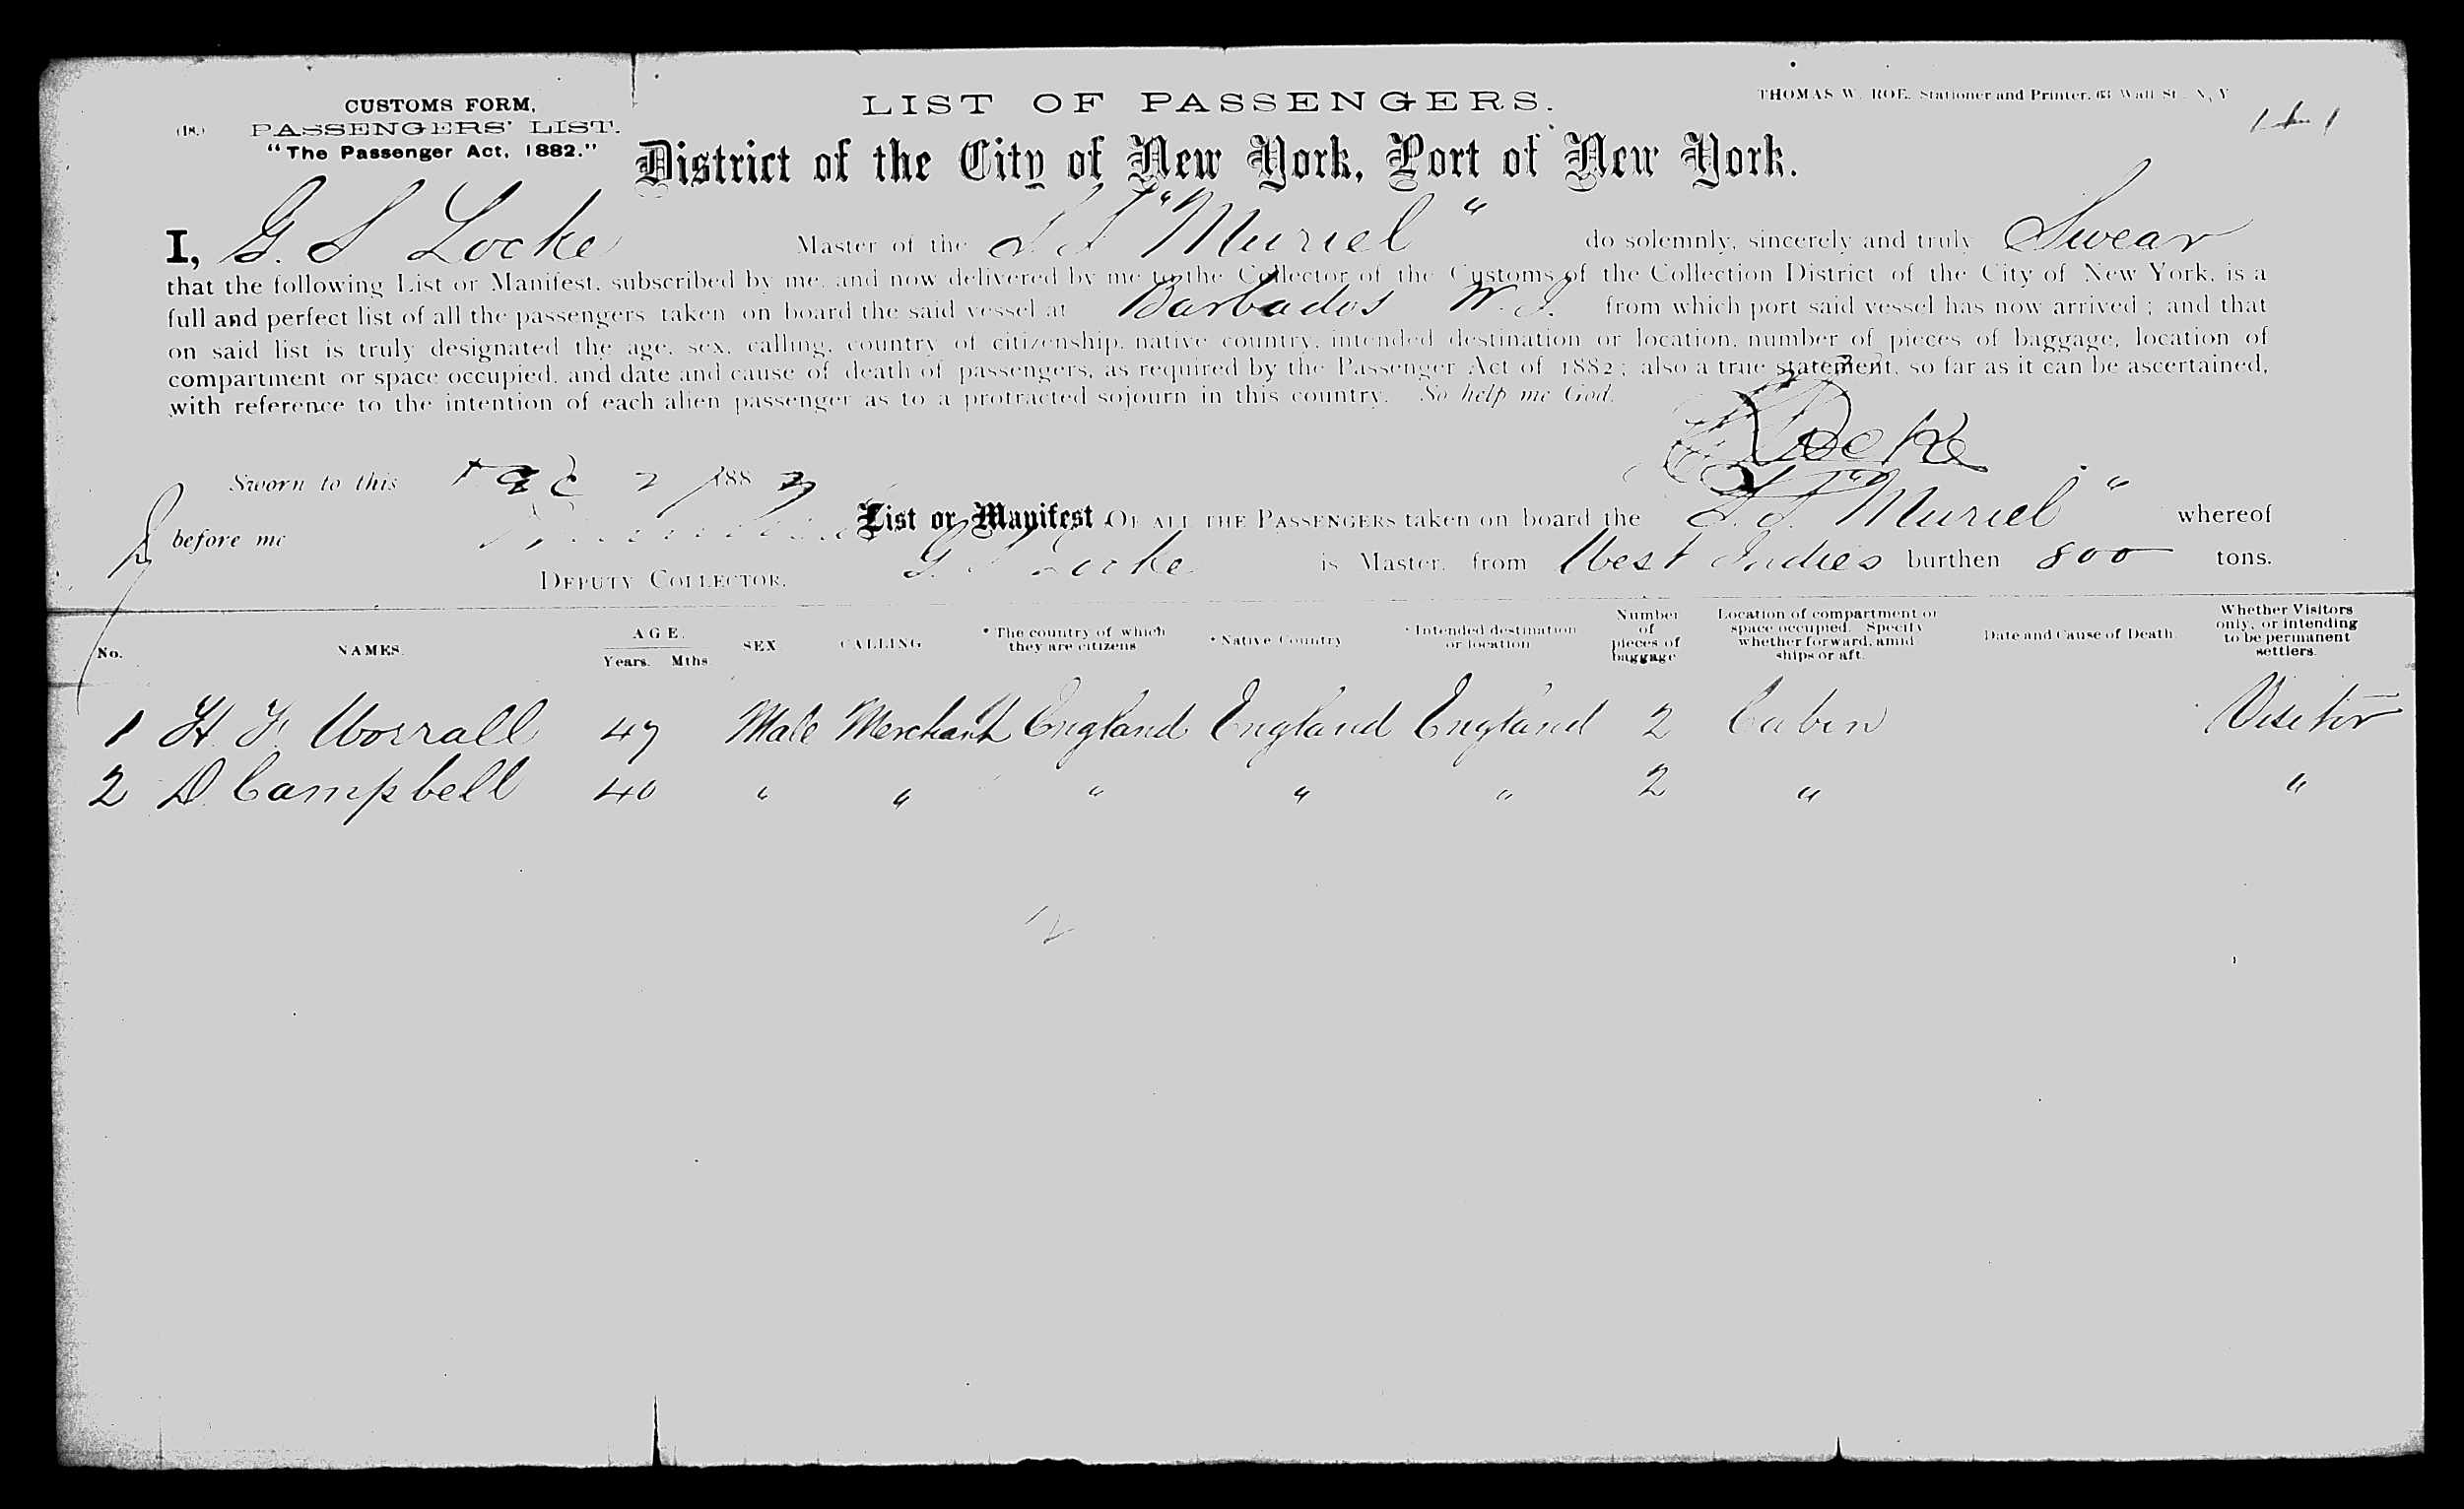 CUSTOMS FORM,
(18.) PASSENGERS' LIST.
"The Passenger Act, 1882."
LIST OF PASSENGERS.
THOMAS W. ROE, Stationer and Printer, 63 Wall St., N, Y
District of the City of New York, Port of New York.
I, G. S Locke Master of the S S "Muriel" do solemnly, sincerely and truly Swear
that the following List or Manifest, subscribed by me, and now delivered by me to the Collector of the Customs of the Collection District of the City of New York, is a
full and perfect list of all the passengers taken on board the said vessel at Barbados W. I. from which port said vessel has now arrived; and that
on said list is truly designated the age, sex, calling, country of citizenship, native country, intended destination or location, number of pieces of baggage, location of
compartment or space occupied, and date and cause of death of passengers, as required by the Passenger Act of 1882; also a true statement, so far as it can be ascertained,
with reference to the intention of each alien passenger as to a protracted sojourn in this country. So help me God.
Locke
Sworn to this 2 188
before me
DEPUTY COLLECTOR.
List or Manifest OF ALL THE PASSENGERS taken on board the S. S. "Muriel" whereof
G. S Locke is Master, from West Indies burthen 800 tons.
No. NAMES. AGE. Years. Mths SEX CALLING * The country of which they are citizens * Native Country * Intended destination or location Number of pieces of baggage Location of compartment or space occupied. Specify whether forward, amidships or aft. Date and Cause of Death. Whether Visitors only, or intending to be permanent settlers.
1 H. F. Worrall 47 Male Merchant England England England 2 Cabin Visitor
2 D. Campbell 40 " " " " " 2 " "